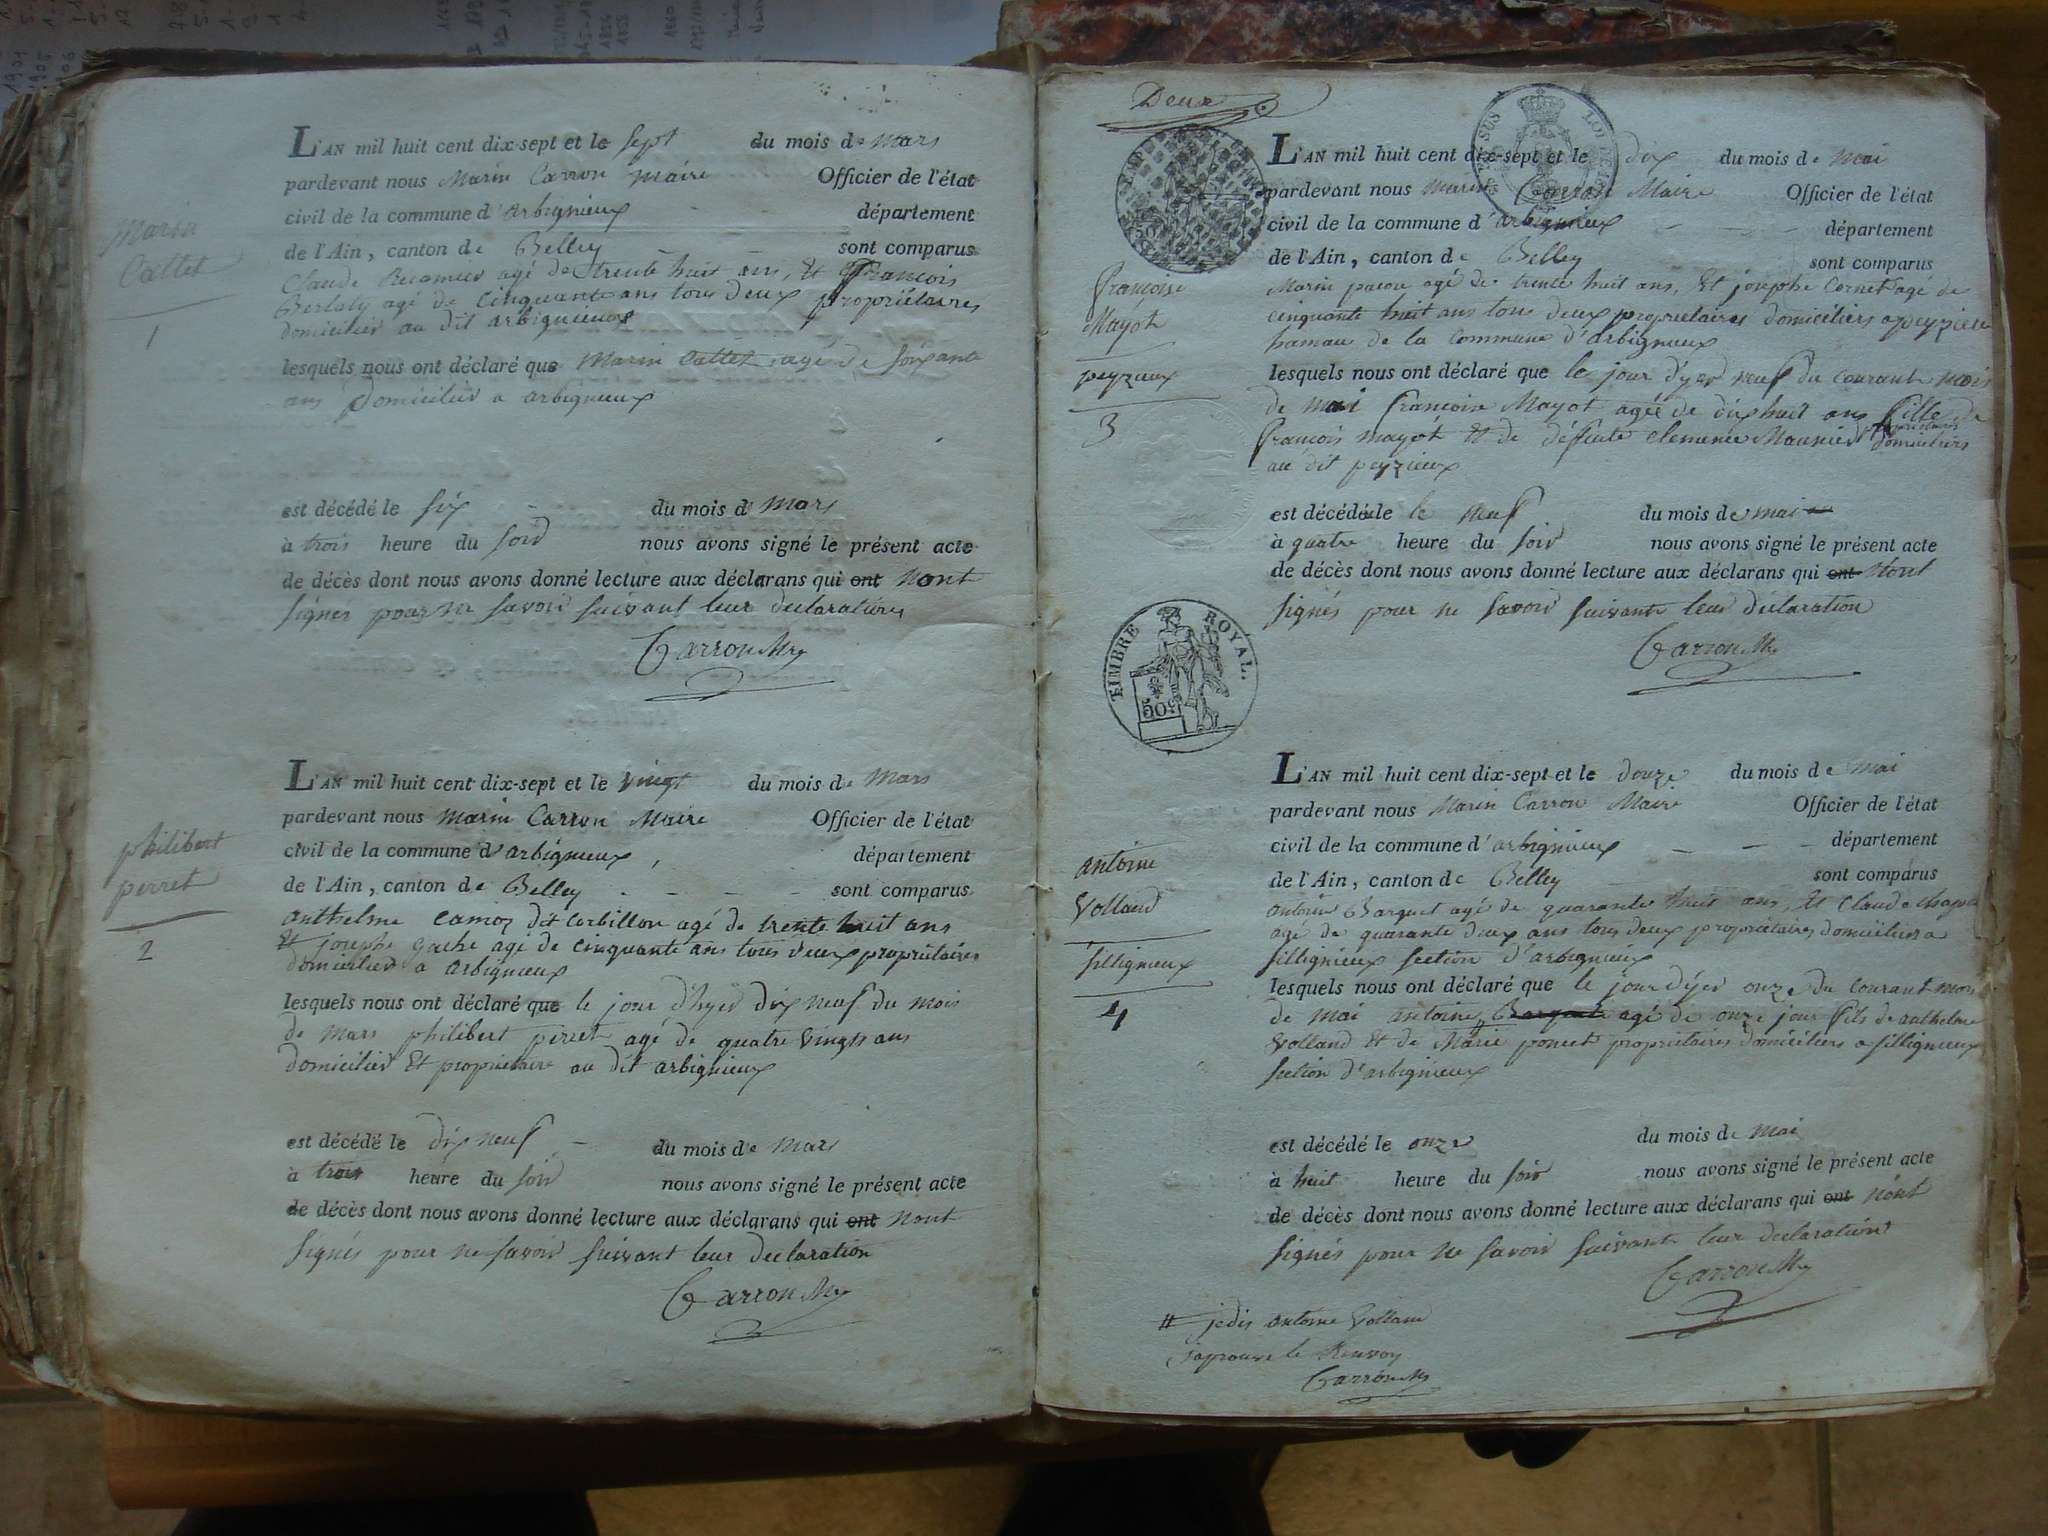 Marin
Cattet
1
L'AN mil huit cent dix-sept et le sept du mois de mars
pardevant nous Marin Carron maire Officier de l'état
civil de la commune d'arbignieux département
de l'Ain, canton de Belley sont comparus
Claude Recamier agé de trente huit ans, et François
Berlaty agé de cinquante ans tous deux propriétaires
domicilies au dit arbignieux
lesquels nous ont déclaré que Marin Cattet agé de soixante
ans domicilier a arbignieux
est décédé le six du mois de mars
à trois heure du soir nous avons signé le présent acte
de décès dont nous avons donné lecture aux déclarans qui ont nont
signés pour ne savoir suivant leur declarations
Carron Mre
philibert
perret
2
L'AN mil huit cent dix-sept et le vingt du mois de mars
pardevant nous Marin Carron Maire Officier de l'état
civil de la commune d'arbignieux, département
de l'Ain, canton de Belley sont comparus
anthelme camoz dit Corbillon agé de trente huit ans
et josephe gache agé de cinquante ans tous deux propriétaires
domicilier a arbignieux
lesquels nous ont déclaré que le jour d'hyer dix neuf du mois
de mars philibert perret agé de quatre vingts ans
domicilier et propriétaire au dit arbignieux
est décédé le dix neuf du mois de mars
à trois heure du soir nous avons signé le présent acte
de décès dont nous avons donné lecture aux déclarans qui ont nont
signés pour ne savoir suivant leur declaration
Carron Mre
Deux
LOI DE 18
TIMBRE ROYAL
50c
Françoise
Mayot
peyzieux
3
L'AN mil huit cent dix-sept et le dix du mois de mai
pardevant nous marin Carron Maire Officier de l'état
civil de la commune d'arbignieux département
de l'Ain, canton de Belley sont comparus
Marin pacou agé de trente huit ans, et josephe Cornet agé de
cinquante huit ans tous deux propriétaires domiciliers a peyzieux
hamau de la commune d'arbignieux
lesquels nous ont déclaré que le jour d'yer neuf du courant mois
de mai françoise Mayot agée de dix huit ans fille de
françois mayot et de deffunte clemence Maunier propriétaires domiciliers
au dit peyzieux
est décédée le le neuf du mois de mai
à quatre heure du soir nous avons signé le présent acte
de décès dont nous avons donné lecture aux déclarans qui ont nont
signés pour ne savoir suivante leur déclaration
Carron Mre
antoine
Volland
sillignieux
4
L'AN mil huit cent dix-sept et le douze du mois de mai
pardevant nous Marin Carron Maire Officier de l'état
civil de la commune d'arbignieux département
de l'Ain, canton de Belley sont comparus
antoine Barquet agé de quarante huit ans, et Claude
agé de quarante deux ans tous deux propriétaires domiciliers a
sillignieux section d'arbignieux
lesquels nous ont déclaré que le jour d'yer onze du courant mois
de mai antoine Barquet agé de onze jour fils de anthelme
Volland et de Marie poncet propriétaires domiciliers a sillignieux
section d'arbignieux
est décédé le onze du mois de mai
à huit heure du soir nous avons signé le présent acte
de décès dont nous avons donné lecture aux déclarans qui ont nont
signés pour ne savoir suivante leur declaration
Carron Mre
# je dis antoine Volland
japrouve le Renvoy
Carron Mre